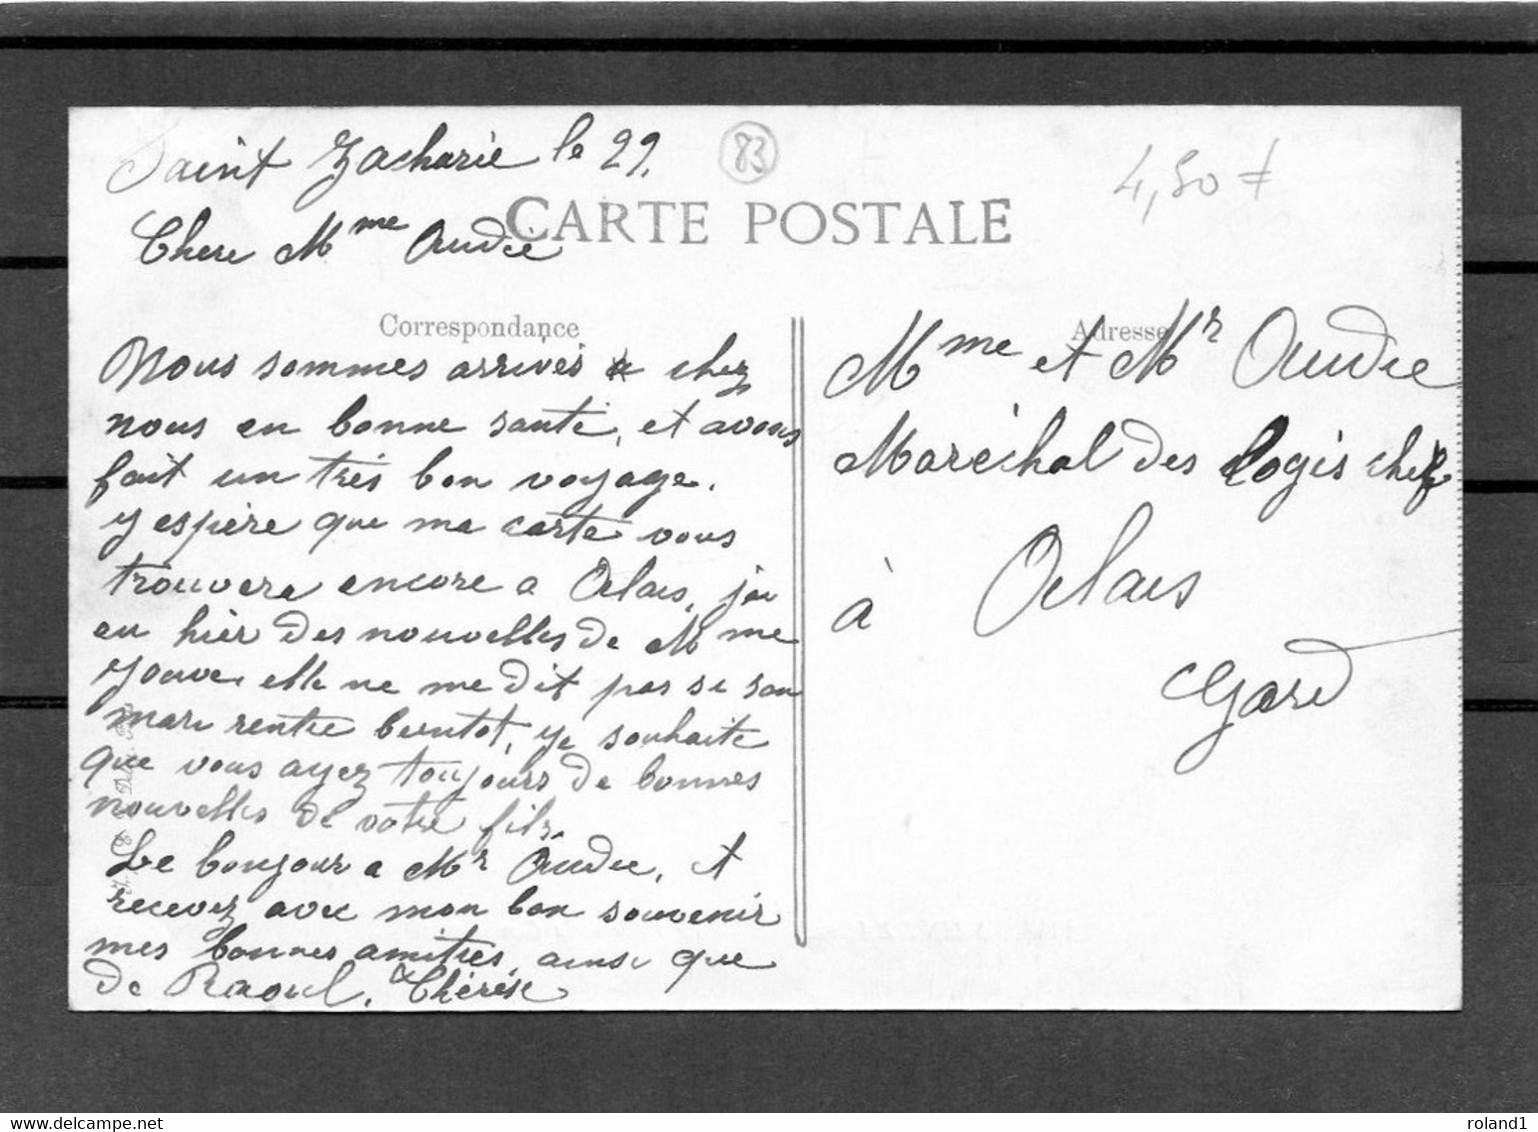 Saint Zacharie le 29.
83
4,50 F
CARTE POSTALE
Chere Mme Audie
Correspondance
Nous sommes arrivés chez
nous en bonne santé, et avons
fait un très bon voyage.
y espère que ma carte vous
trouvera encore a Alais, j'ai
eu hier des nouvelles de Mme
Jouve, elle ne me dit pas si son
mari rentre bientot, je souhaite
que vous ayez toujours de bonnes
nouvelles de votre fils.
Le bonjour a Mr Audie, et
recevez avec mon bon souvenir
mes bonnes amitiés, ainsi que
de Raoul. Thérèse
Adresse
Mme et Mr Audie
Maréchal des Logis chef
à Alais
Gard
roland1